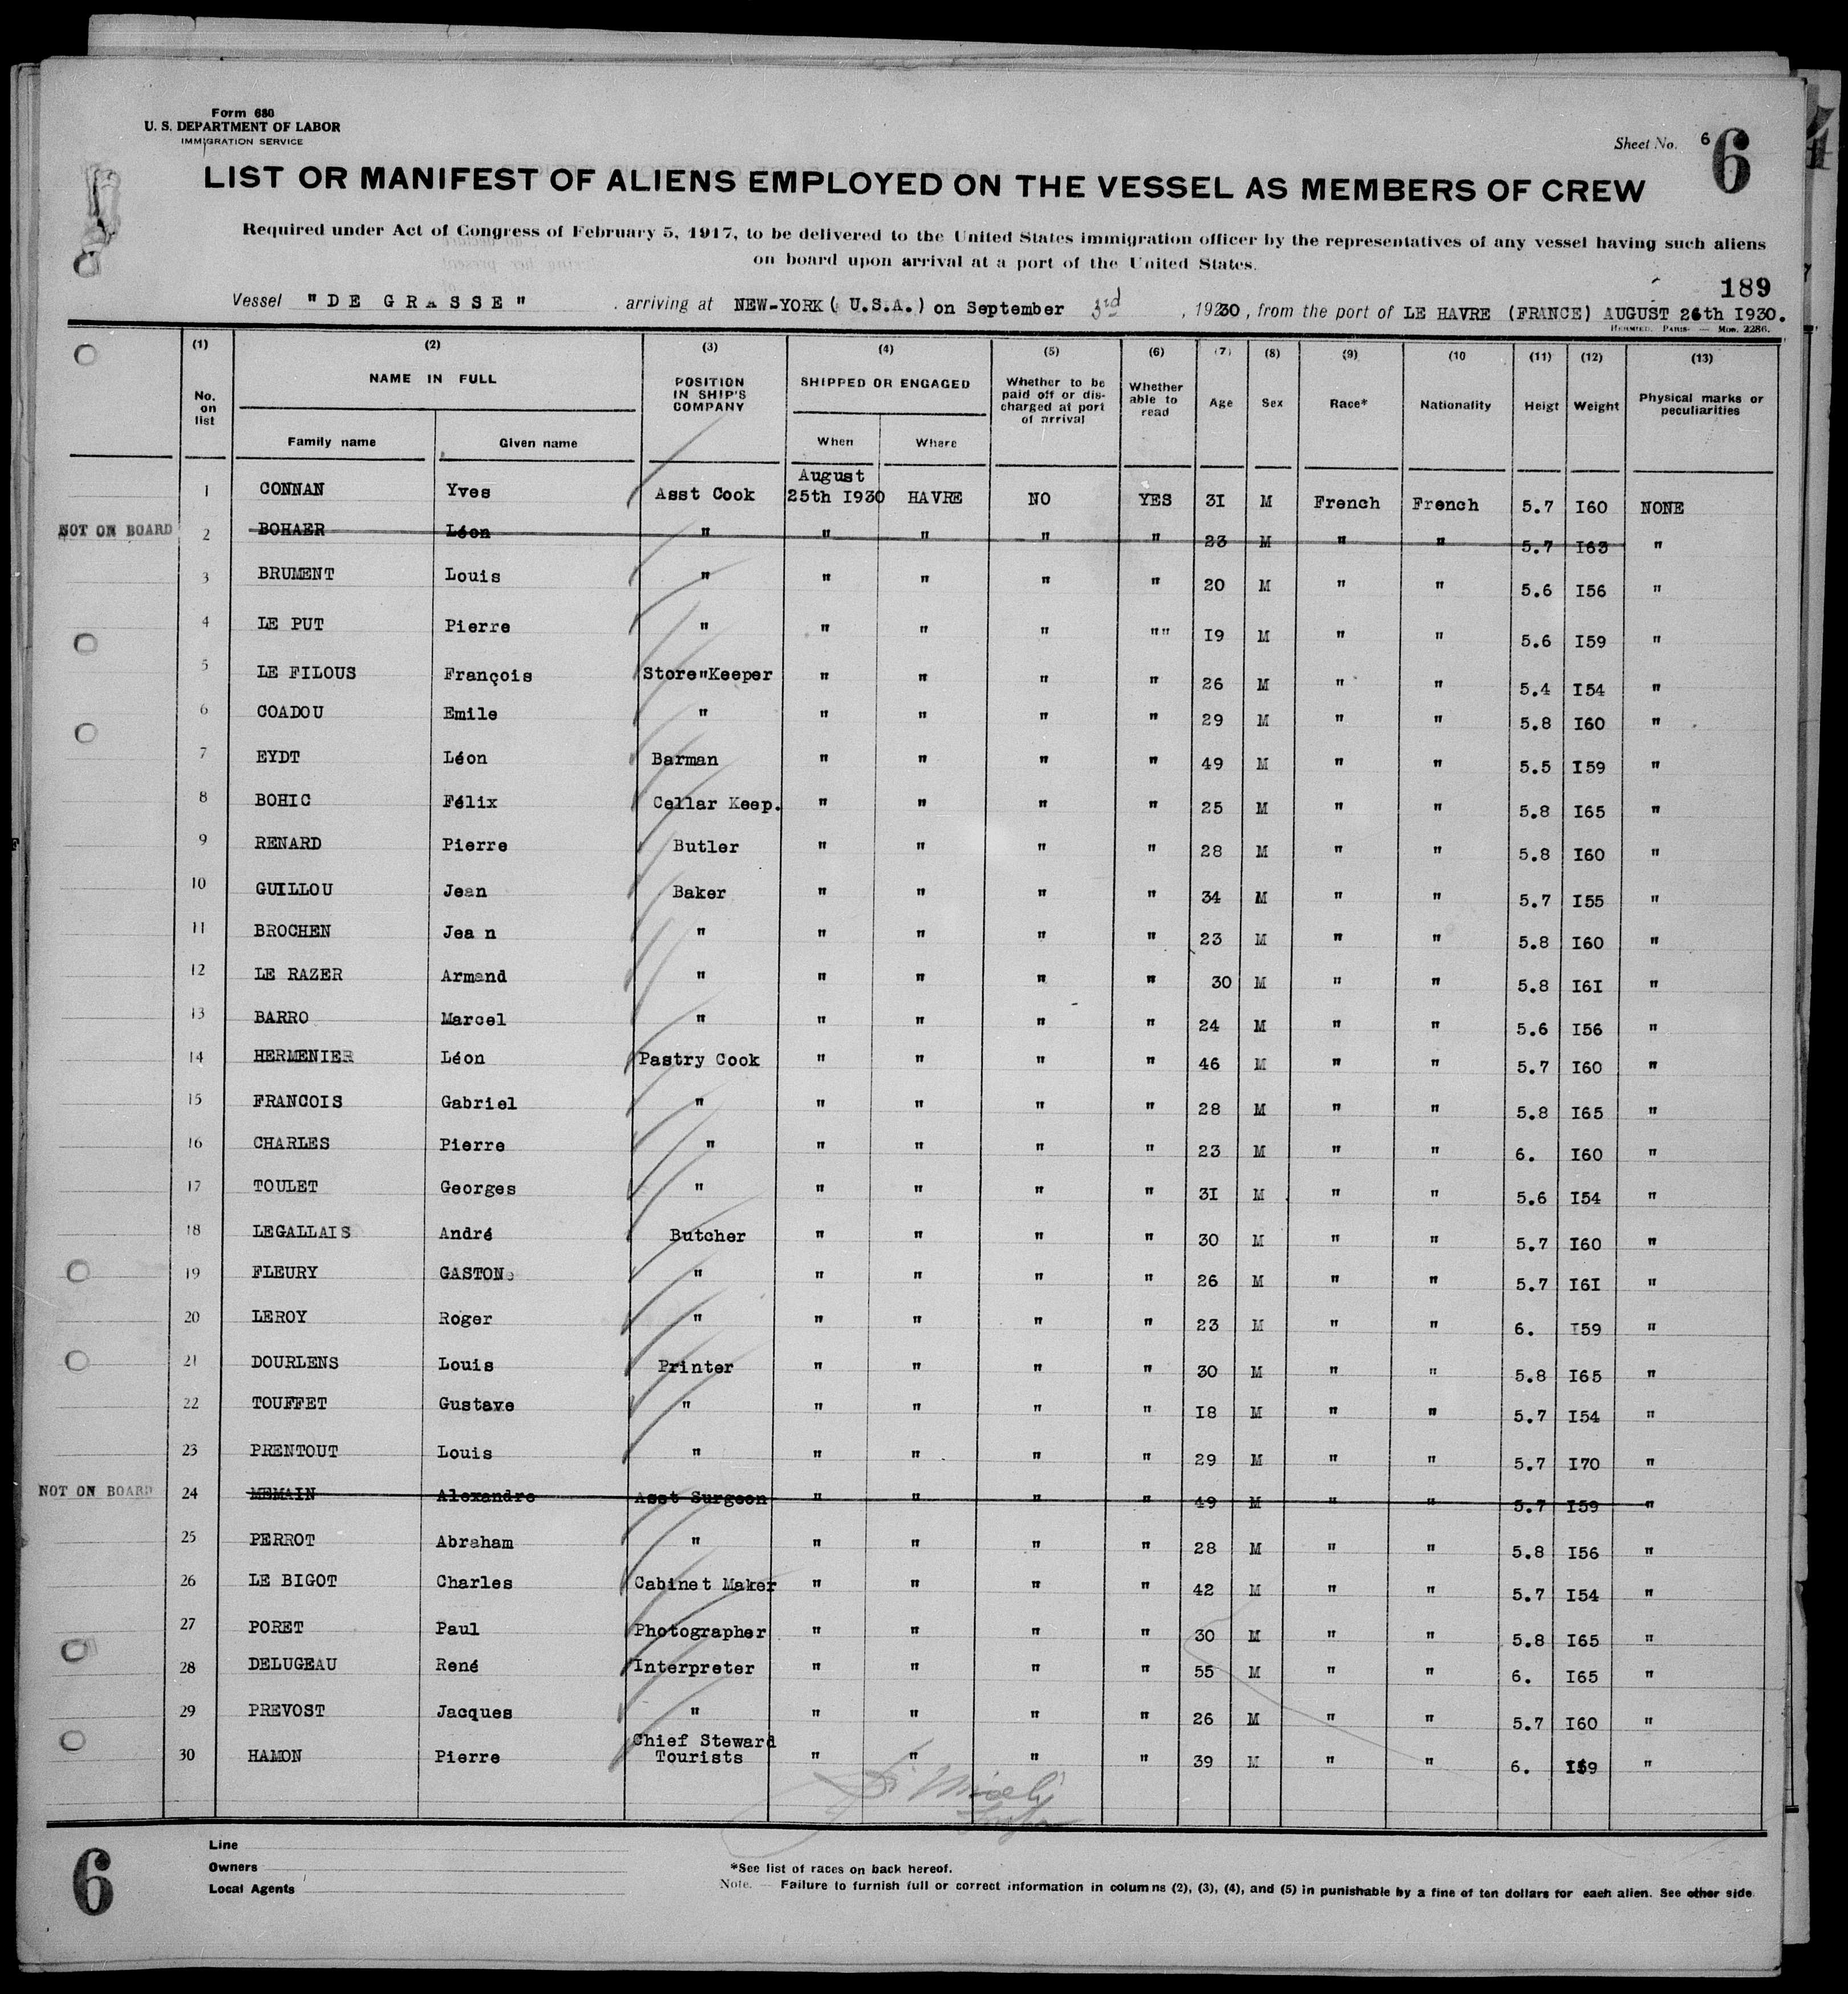 Form 680
U. S. DEPARTMENT OF LABOR
IMMIGRATION SERVICE
Sheet No. 6 6
LIST OR MANIFEST OF ALIENS EMPLOYED ON THE VESSEL AS MEMBERS OF CREW
Required under Act of Congress of February 5, 1917, to be delivered to the United States immigration officer by the representatives of any vessel having such aliens
on board upon arrival at a port of the United States.
189
Vessel "DE GRASSE" , arriving at NEW-YORK ( U.S.A.) on September 3rd , 1930, from the port of LE HAVRE (FRANCE) AUGUST 26th I930.
HERMIEU. PARIS. — Mod. 2286.
(1) (2) (3) (4) (5) (6) (7) (8) (9) (10 (11) (12) (13)
No. on list NAME IN FULL POSITION IN SHIP'S COMPANY SHIPPED OR ENGAGED Whether to be paid off or discharged at port of arrival Whether able to read Age Sex Race* Nationality Heigt Weight Physical marks or peculiarities
Family name Given name When Where
1 CONNAN Yves Asst Cook August 25th I930 HAVRE NO YES 3I M French French 5.7 I60 NONE
NOT ON BOARD 2 BOHAER Léon " " " " " 23 M " " 5.7 I63 "
3 BRUMENT Louis " " " " " 20 M " " 5.6 I56 "
4 LE PUT Pierre " " " " "" I9 M " " 5.6 I59 "
5 LE FILOUS François Store"Keeper " " " " 26 M " " 5.4 I54 "
6 COADOU Emile " " " " " 29 M " " 5.8 I60 "
7 EYDT Léon Barman " " " " 49 M " " 5.5 I59 "
8 BOHIC Félix Cellar Keep. " " " " 25 M " " 5.8 I65 "
9 RENARD Pierre Butler " " " " 28 M " " 5.8 I60 "
10 GUILLOU Jean Baker " " " " 34 M " " 5.7 I55 "
11 BROCHEN Jea n " " " " " 23 M " " 5.8 I60 "
12 LE RAZER Armand " " " " " 30 M " " 5.8 I6I "
13 BARRO Marcel " " " " " 24 M " " 5.6 I56 "
14 HERMENIER Léon Pastry Cook " " " " 46 M " " 5.7 I60 "
15 FRANCOIS Gabriel " " " " " 28 M " " 5.8 I65 "
16 CHARLES Pierre " " " " " 23 M " " 6. I60 "
17 TOULET Georges " " " " " 3I M " " 5.6 I54 "
18 LEGALLAIS André Butcher " " " " 30 M " " 5.7 I60 "
19 FLEURY GASTON " " " " " 26 M " " 5.7 I6I "
20 LEROY Roger " " " " " 23 M " " 6. I59 "
21 DOURLENS Louis Printer " " " " 30 M " " 5.8 I65 "
22 TOUFFET Gustave " " " " " I8 M " " 5.7 I54 "
23 PRENTOUT Louis " " " " " 29 M " " 5.7 I70 "
NOT ON BOARD 24 MEMAIN Alexandre Asst Surgeon " " " " 49 M " " 5.7 I59 "
25 PERROT Abraham " " " " " 28 M " " 5.8 I56 "
26 LE BIGOT Charles Cabinet Maker " " " " 42 M " " 5.7 I54 "
27 PORET Paul Photographer " " " " 30 M " " 5.8 I65 "
28 DELUGEAU René Interpreter " " " " 55 M " " 6. I65 "
29 PREVOST Jacques " " " " " 26 M " " 5.7 I60 "
30 HAMON Pierre Chief Steward Tourists " " " " 39 M " " 6. I59 "
6
Line
Owners
Local Agents
*See list of races on back hereof.
Note. — Failure to furnish full or correct information in columns (2), (3), (4), and (5) in punishable by a fine of ten dollars for each alien. See other side